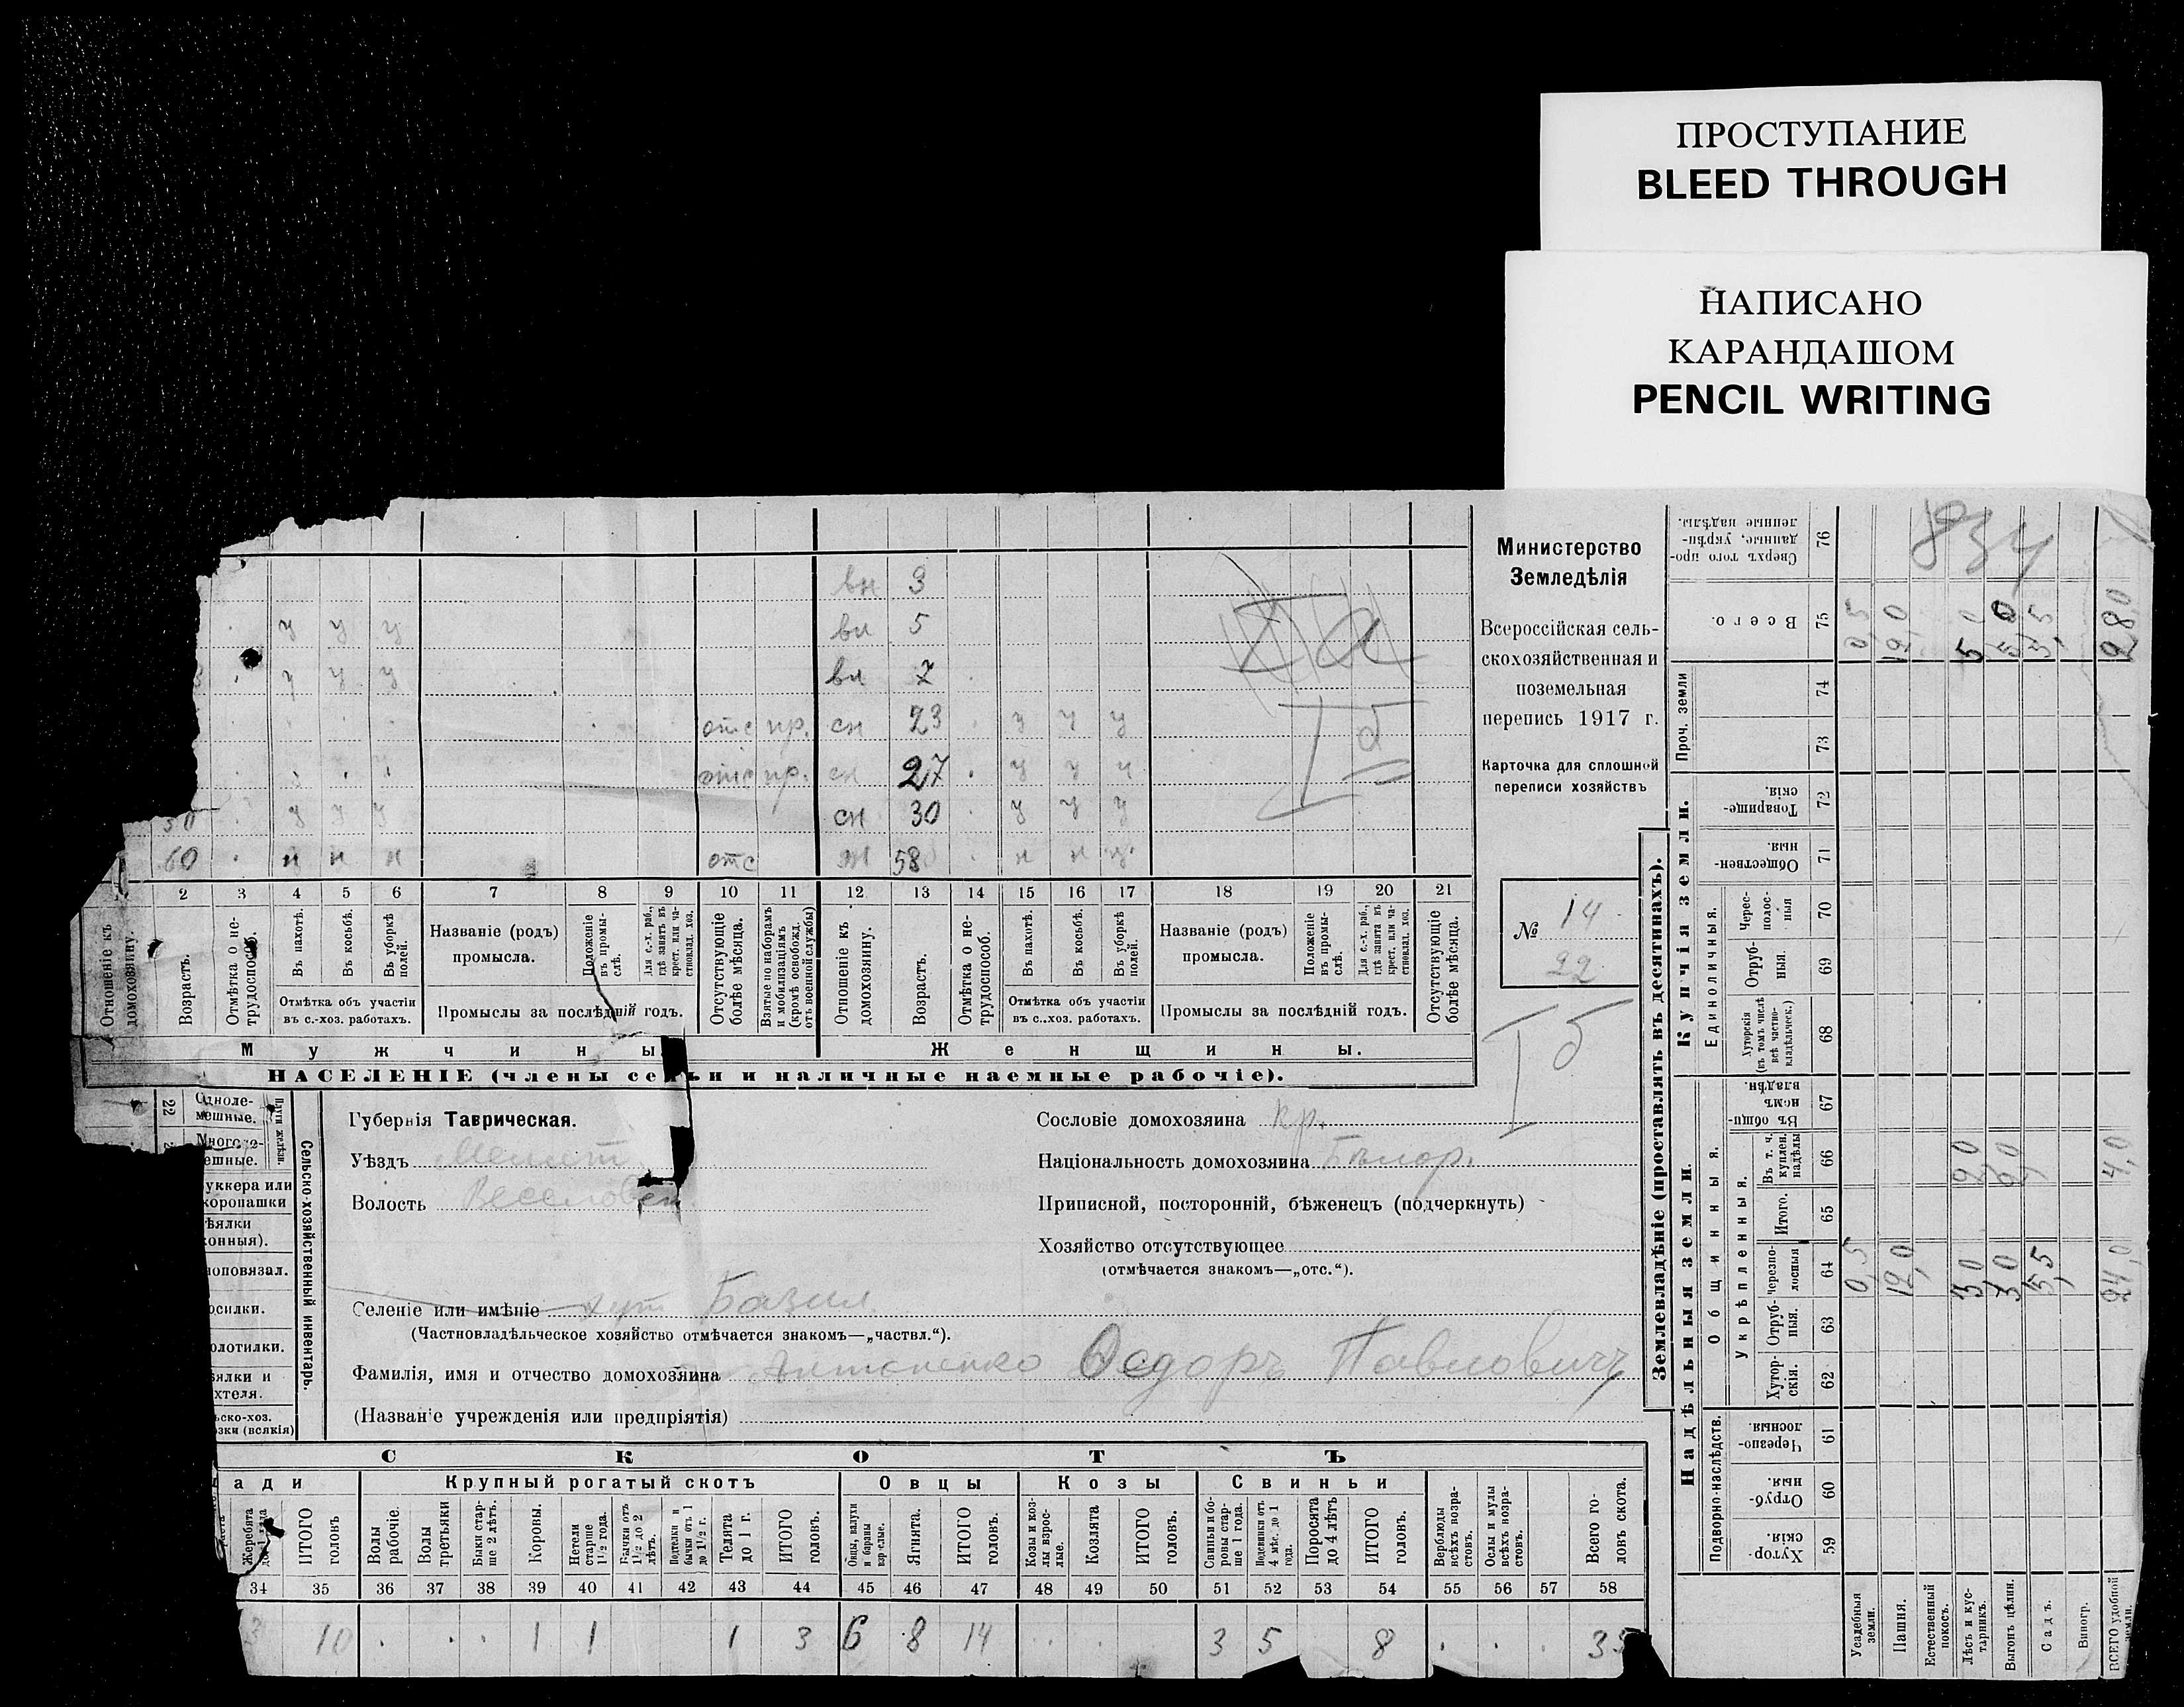 ПРОСТУПАНИЕ
BLEED THROUGH
НАПИСАНО
КАРАНДАШОМ
PENCIL WRITING
вн 3
у у у вн 5
у у у вн 7
отс пр. сн 23 у у у
отс пр. сн 27 у у у
у у у сн 30 у у у
60 н н н отс ж 58 н н у
2 3 4 5 6 7 8 9 10 11 12 13 14 15 16 17 18 19 20 21
Отношеніе къ домохозяину.
Возрастъ.
Отмѣтка о нетрудоспособ.
Въ пахотѣ.
Въ косьбѣ.
Въ уборкѣ полей.
Отмѣтка объ участіи
въ с.-хоз. работахъ.
Названіе (родъ)
промысла.
Положеніе въ промыслѣ.
Для с.-х. раб., гдѣ занятъ въ крест. или частновлад. хоз.
Промыслы за послѣдній годъ.
Отсутствующіе болѣе мѣсяца.
Взятые по наборамъ и мобилизаціямъ (кромѣ освобожд. отъ военной службы)
Отношеніе къ домохозяину.
Возрастъ.
Отмѣтка о нетрудоспособ.
Въ пахотѣ.
Въ косьбѣ.
Въ уборкѣ полей.
Отмѣтка объ участіи
въ с.-хоз. работахъ.
Названіе (родъ)
промысла.
Положеніе въ промыслѣ.
Для с.-х. раб., гдѣ занята въ крест. или частновлад. хоз.
Промыслы за послѣдній годъ.
Отсутствующіе болѣе мѣсяца.
Мужчины
Женщины.
НАСЕЛЕНІЕ (члены се ьи и наличные наемные рабочіе).
Iа
Iб
Министерство
Земледѣлія
Всероссійская сель-
скохозяйственная и
поземельная
перепись 1917 г.
Карточка для сплошной
переписи хозяйствъ
№ 14
22
Iб
22
Одноле-
мешные.
Многоле-
ешные.
Плуги желѣзн.
уккера или
коропашки
ѣялки
онныя).
оповязал.
осилки.
олотилки.
ѣялки и
хтеля.
ьско-хоз.
озки (всякія)
Сельско-хозяйственный инвентарь.
Губернія Таврическая.
Уѣздъ Мелит
Волость Веселовск
Селеніе или имѣніе хут Базил
(Частновладѣльческое хозяйство отмѣчается знакомъ—„частвл.“).
Фамилія, имя и отчество домохозяина Антоненко Ѳедоръ Павловичъ
(Названіе учрежденія или предпріятія)
Сословіе домохозяина кр.
Національность домохозяина
Приписной, посторонній, бѣженецъ (подчеркнуть)
Хозяйство отсутствующее
(отмѣчается знакомъ—„отс.“).
СКОТЪ
ади
Крупный рогатый скотъ
Овцы
Козы
Свиньи
Жеребята до 1 года
ИТОГО головъ
Волы рабочіе.
Волы третьяки
Быки старше 2 лѣтъ.
Коровы.
Нетели старше 1 1/2 года.
Бычки отъ 1 1/2 до 2 лѣтъ.
Подтелки и бычки отъ 1 до 1 1/2 г.
Телята до 1 г.
ИТОГО головъ.
Овцы, валухи и бараны взрослые.
Ягнята.
ИТОГО головъ.
Козы и козлы взрослые.
Козлята
ИТОГО головъ.
Свиньи и боровы старше 1 года.
Подсвинки отъ 4 мѣс. до 1 года.
Поросята до 4 лѣтъ
ИТОГО головъ.
Верблюды всѣхъ возрастовъ.
Ослы и мулы всѣхъ возрастовъ.
Всего головъ скота.
34 35 36 37 38 39 40 41 42 43 44 45 46 47 48 49 50 51 52 53 54 55 56 57 58
3 10 1 1 1 3 6 8 14 3 5 8 35
Землевладѣніе (проставлять въ десятинахъ).
Надѣльныя земли.
Купчія земли.
Проч. земли
Подворно-наслѣдств.
Общинныя.
Укрѣпленныя.
Единоличныя.
Хуторскія.
Отрубныя.
Черезполосныя
Хуторскія.
Отрубныя.
Черезполосныя
Итого.
Въ т. ч. куплен. надѣлы
Въ общинномъ владѣн.
Хуторскія (въ томъ числѣ всѣ частновладѣльческ.)
Отрубныя.
Чересполосныя
Общественныя
Товарищескія.
Всего.
Сверхъ того проданные, укрѣпленные надѣлы.
59 60 61 62 63 64 65 66 67 68 69 70 71 72 73 74 75 76
834
Усадебныя земли.
0,5 0,5
Пашня.
12,0 12,0
Естественный покосъ.
Лѣсъ и кустарникъ.
3,0 2,0 5,0
Выгонъ цѣлин.
3,0 2,0 5,0
Садъ.
5,5 5,5
Виногр.
ВСЕГО удобной земли.
24,0 4,0 28,0